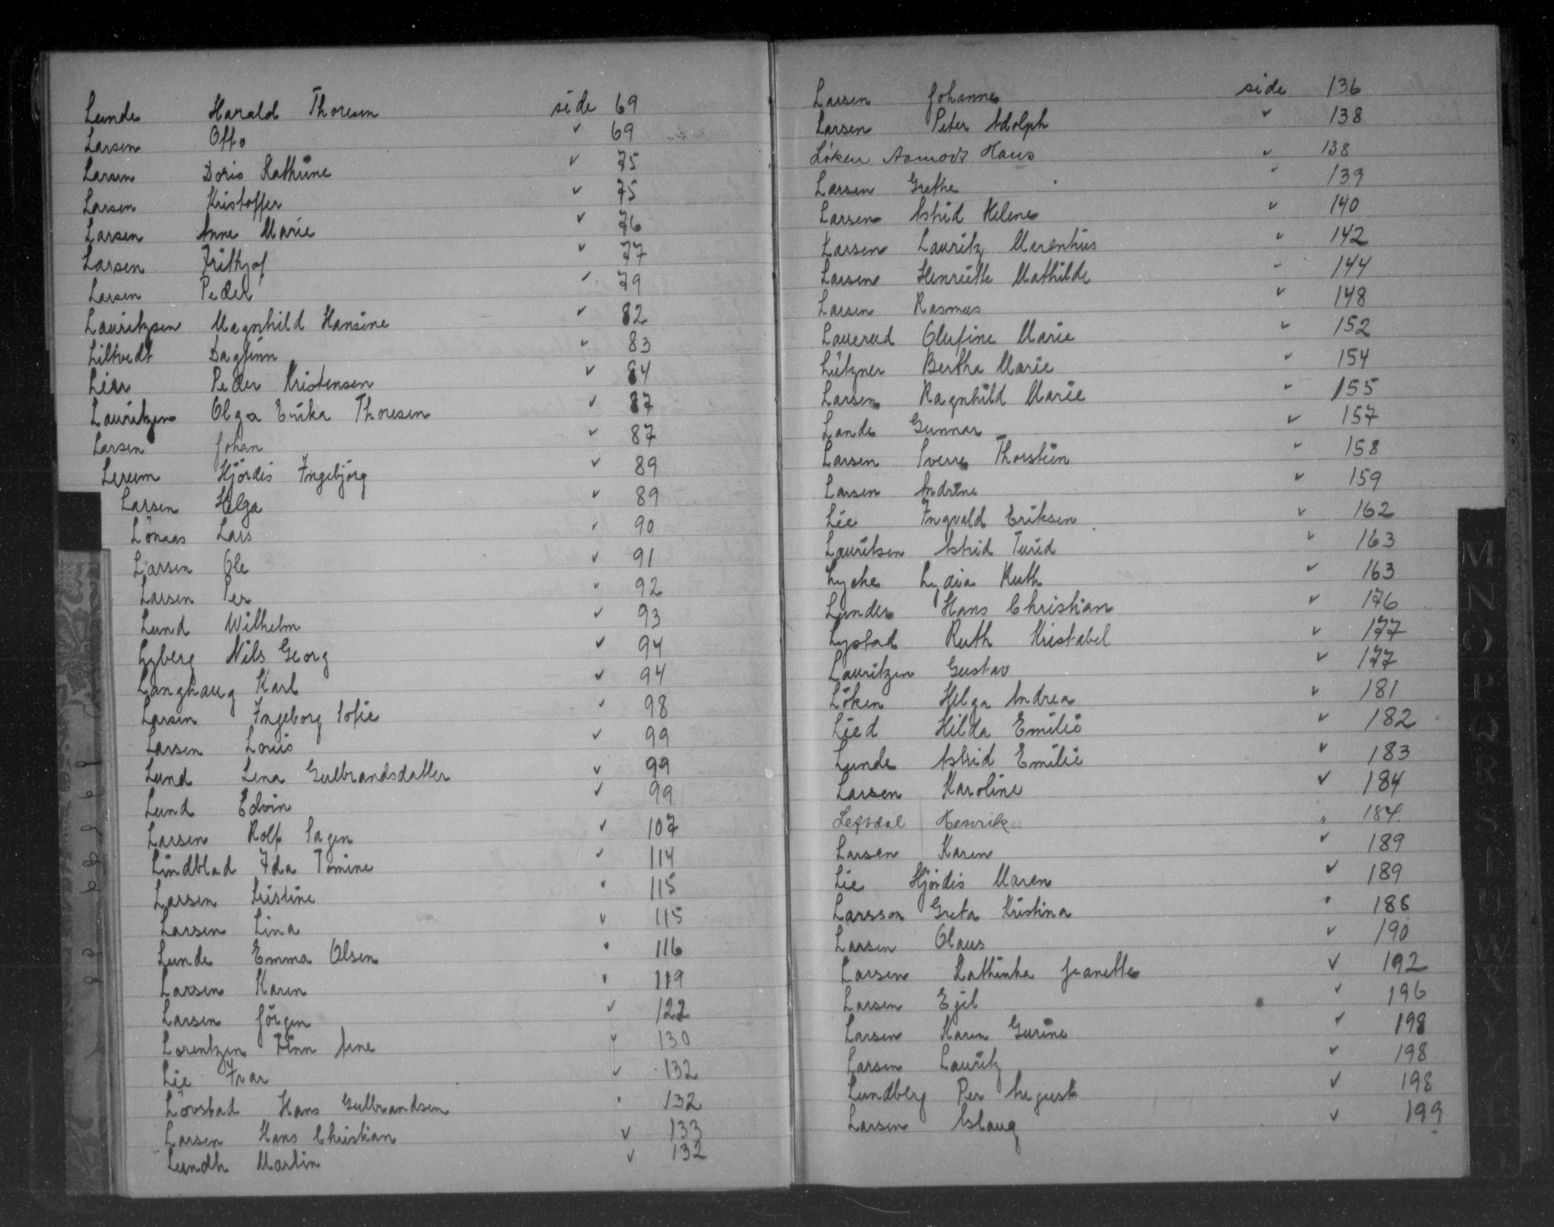 Lunde Harald Thoresen side 69
Larsen Otto " 69
Larsen Doris Kathrine " 75
Larsen Kristoffer " 75
Larsen Anne Marie " 76
Larsen Frithjof " 77
Larsen Peder " 79
Lauritzsen Magnhild Hansine " 82
Liltvedt Dagfinn " 83
Lier Peder Kristensen " 84
Lauritzen Olga Erika Thoresen " 87
Larsen Johan " 87
Lereum Hjördis Ingebjörg " 89
Larsen Helga " 89
Lönaas Lars " 90
Larsen Ole " 91
Larsen Per " 92
Lund Wilhelm " 93
Lyberg Nils Georg " 94
Langhaug Karl " 94
Larsen Ingeborg Sofie " 98
Larsen Louis " 99
Lund Lina Gulbrandsdatter " 99
Lund Edvin " 99
Larsen Rolf Sagen " 107
Lindblad Ida Tomine " 114
Larsen Kristine " 115
Larsen Lina " 115
Lunde Emma Olsen " 116
Larsen Karen " 119
Larsen Jörgen " 122
Lorentzen Finn Arne " 130
Lie Ivar " 132
Lövstad Hans Gulbrandsen " 132
Larsen Hans Christian " 133
Lundh Martin " 132
Larsen Johannes side 136
Larsen Peter Adolph " 138
Löken Aamodt Hans " 138
Larsen Grethe " 139
Larsen Astrid Helene " 140
Larsen Lauritz Marenhius " 142
Larsen Henriette Mathilde " 144
Larsen Rasmus " 148
Lauerud Olufine Marie " 152
Lützner Bertha Marie " 154
Larsen Ragnhild Marie " 155
Lande Gunnar " 157
Larsen Sverre Thorstein " 158
Larsen Andrine " 159
Lie Ingvald Eriksen " 162
Lauritsen Astrid Turid " 163
Lyche Lydia Ruth " 163
Lunder Hans Christian " 176
Lystad Ruth Kristabel " 177
Lauritzen Gustav " 177
Löken Helga Andrea " 181
Lied Hilda Emilie " 182
Lunde Astrid Emilie " 183
Larsen Karoline " 184
Henrik " 184
Larsen Karen " 189
Lie Hjördis Maren " 189
Larsson Greta Kristina " 186
Larsen Olaus " 190
Larsen Kathinka Jeanette " 192
Larsen Egil " 196
Larsen Karen Gurine " 198
Larsen Lauritz " 198
Lundberg Per August " 198
Larsen Aslaug " 199
M
N
O
P
Q
R
S